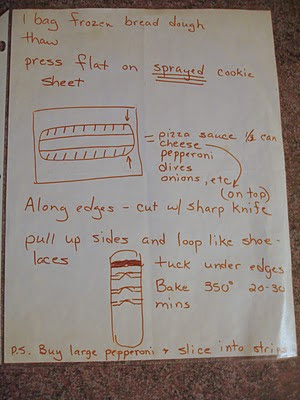 1 bag frozen bread dough
thaw
press flat on sprayed cookie
sheet
= pizza sauce 1/2 can
cheese
pepperoni
olives
onions, etc
(on top)
Along edges - cut w/ sharp knife
pull up sides and loop like shoe-
laces
tuck under edges
Bake 350° 20-30
mins
P.S. Buy large pepperoni & slice into strips